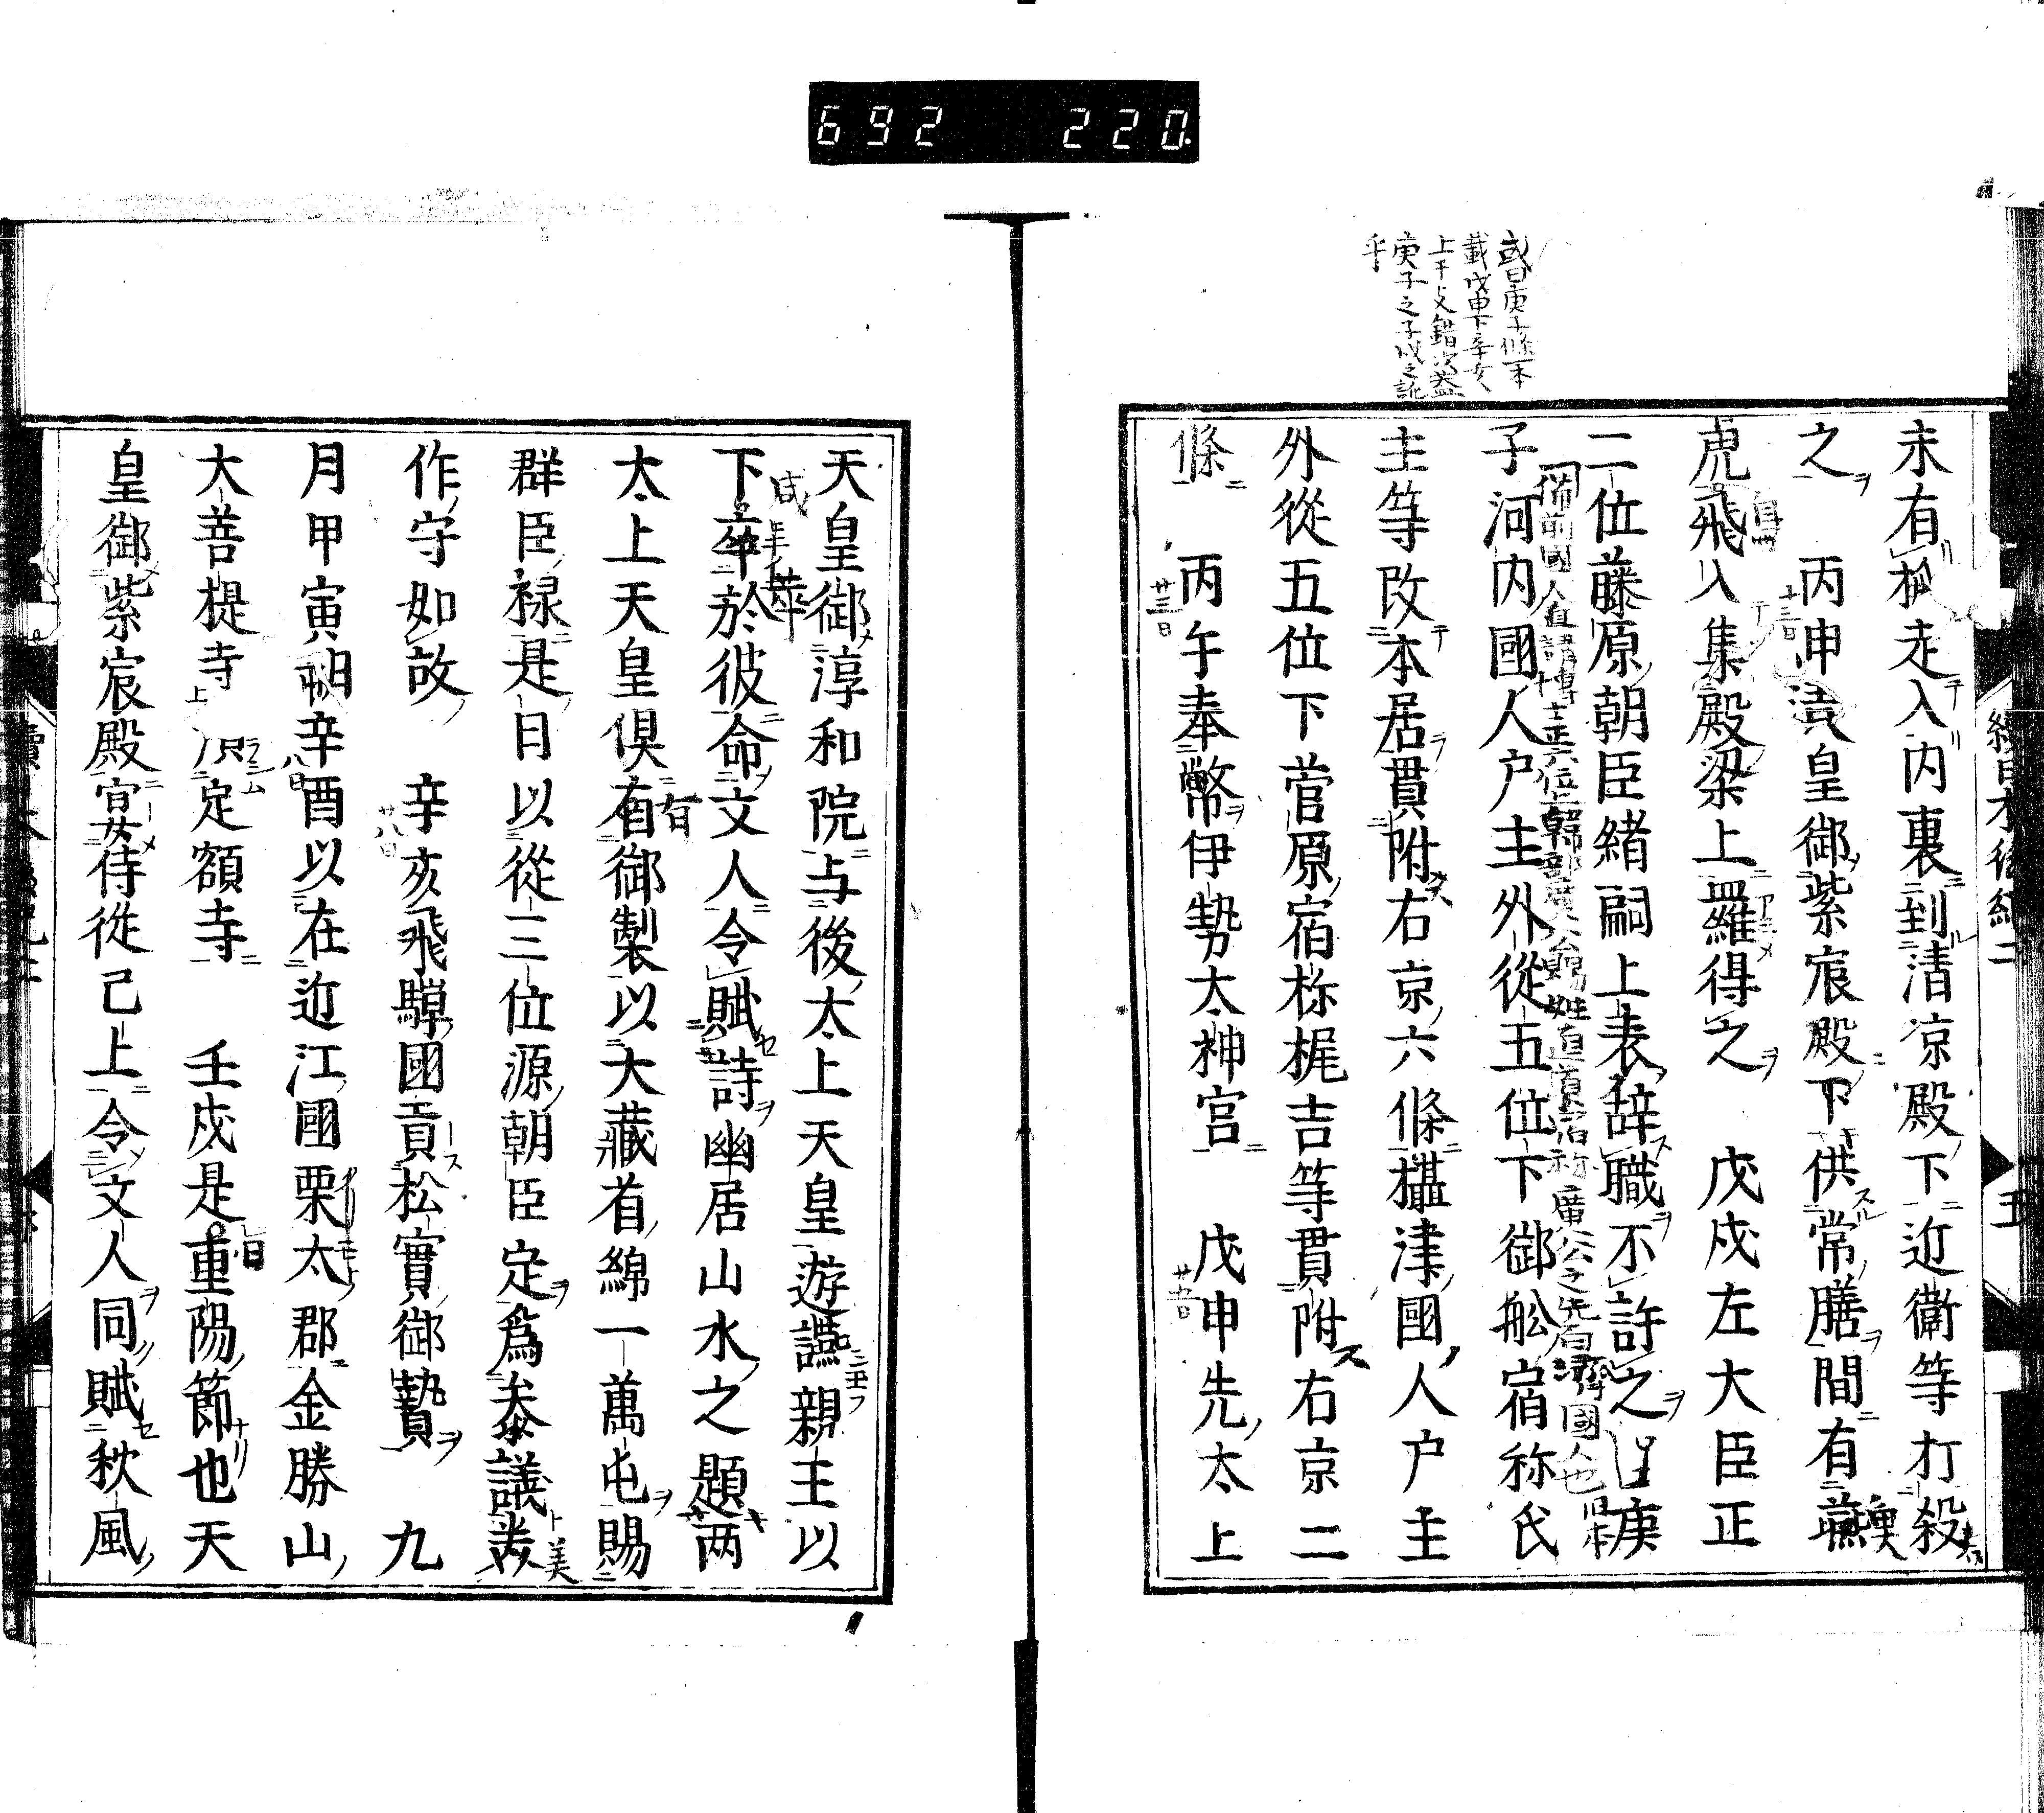 692 220
或曰庚子條一本
載戊申下幸女
上干支錯次蓋
庚子之子戊之訛
乎
未有狐走入内裏到清凉殿下近衞等打殺
之 丙申天皇御紫宸殿下供常膳間有燕
虎飛入集殿梁上罒羅得之 戊戌左大臣正
二位藤原朝臣緒嗣上表辞職不許之 庚
備前國人直講博士正六位上韓部廣公賜姓直道宿祢廣公之先百濟國人也
子河内國人戸主外從五位下御舩宿祢氏
主等改本居貫附右京六條攝津國人户主
外從五位下菅原宿祢梶吉等貫附右京二
條 丙午奉幣伊勢太神宮 戊申先太上
廿三日
廿五日
天皇御淳和院与後太上天皇遊讌親王以
下卒於彼命文人令賦詩幽居山水之題两
太上天皇倶有御製以大藏省綿一萬屯賜
群臣禄是日以從三位源朝臣定爲叅議美
作守如故 辛亥飛驒國貢松實御贄 九
廿八日
月甲寅朔辛酉以在近江國栗太郡金勝山
八日
大菩提寺 定額寺 壬戌是重陽節也天
日
皇御紫宸殿宴侍從已上令文人同賦秋風